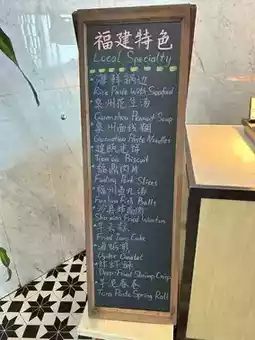 福建特色
Local Specialty
海鲜锅边
Rice Paste With Seafood
泉州花生汤
Quanzhou Peanut Soup
泉州面线糊
Quanzhou Paste Noodles
Biscuit
福鼎肉片
Fuding Pork Slices
福州鱼丸汤
Fuzhou Fish Balls
沙县炸馄饨
Shaxian Fried Wonton
Fried Taro Cake
海蛎煎
Oyster Omelet
虾虾酥
Deep-Fried Shrimp Crisp
芋泥春卷
Taro Paste Spring Roll